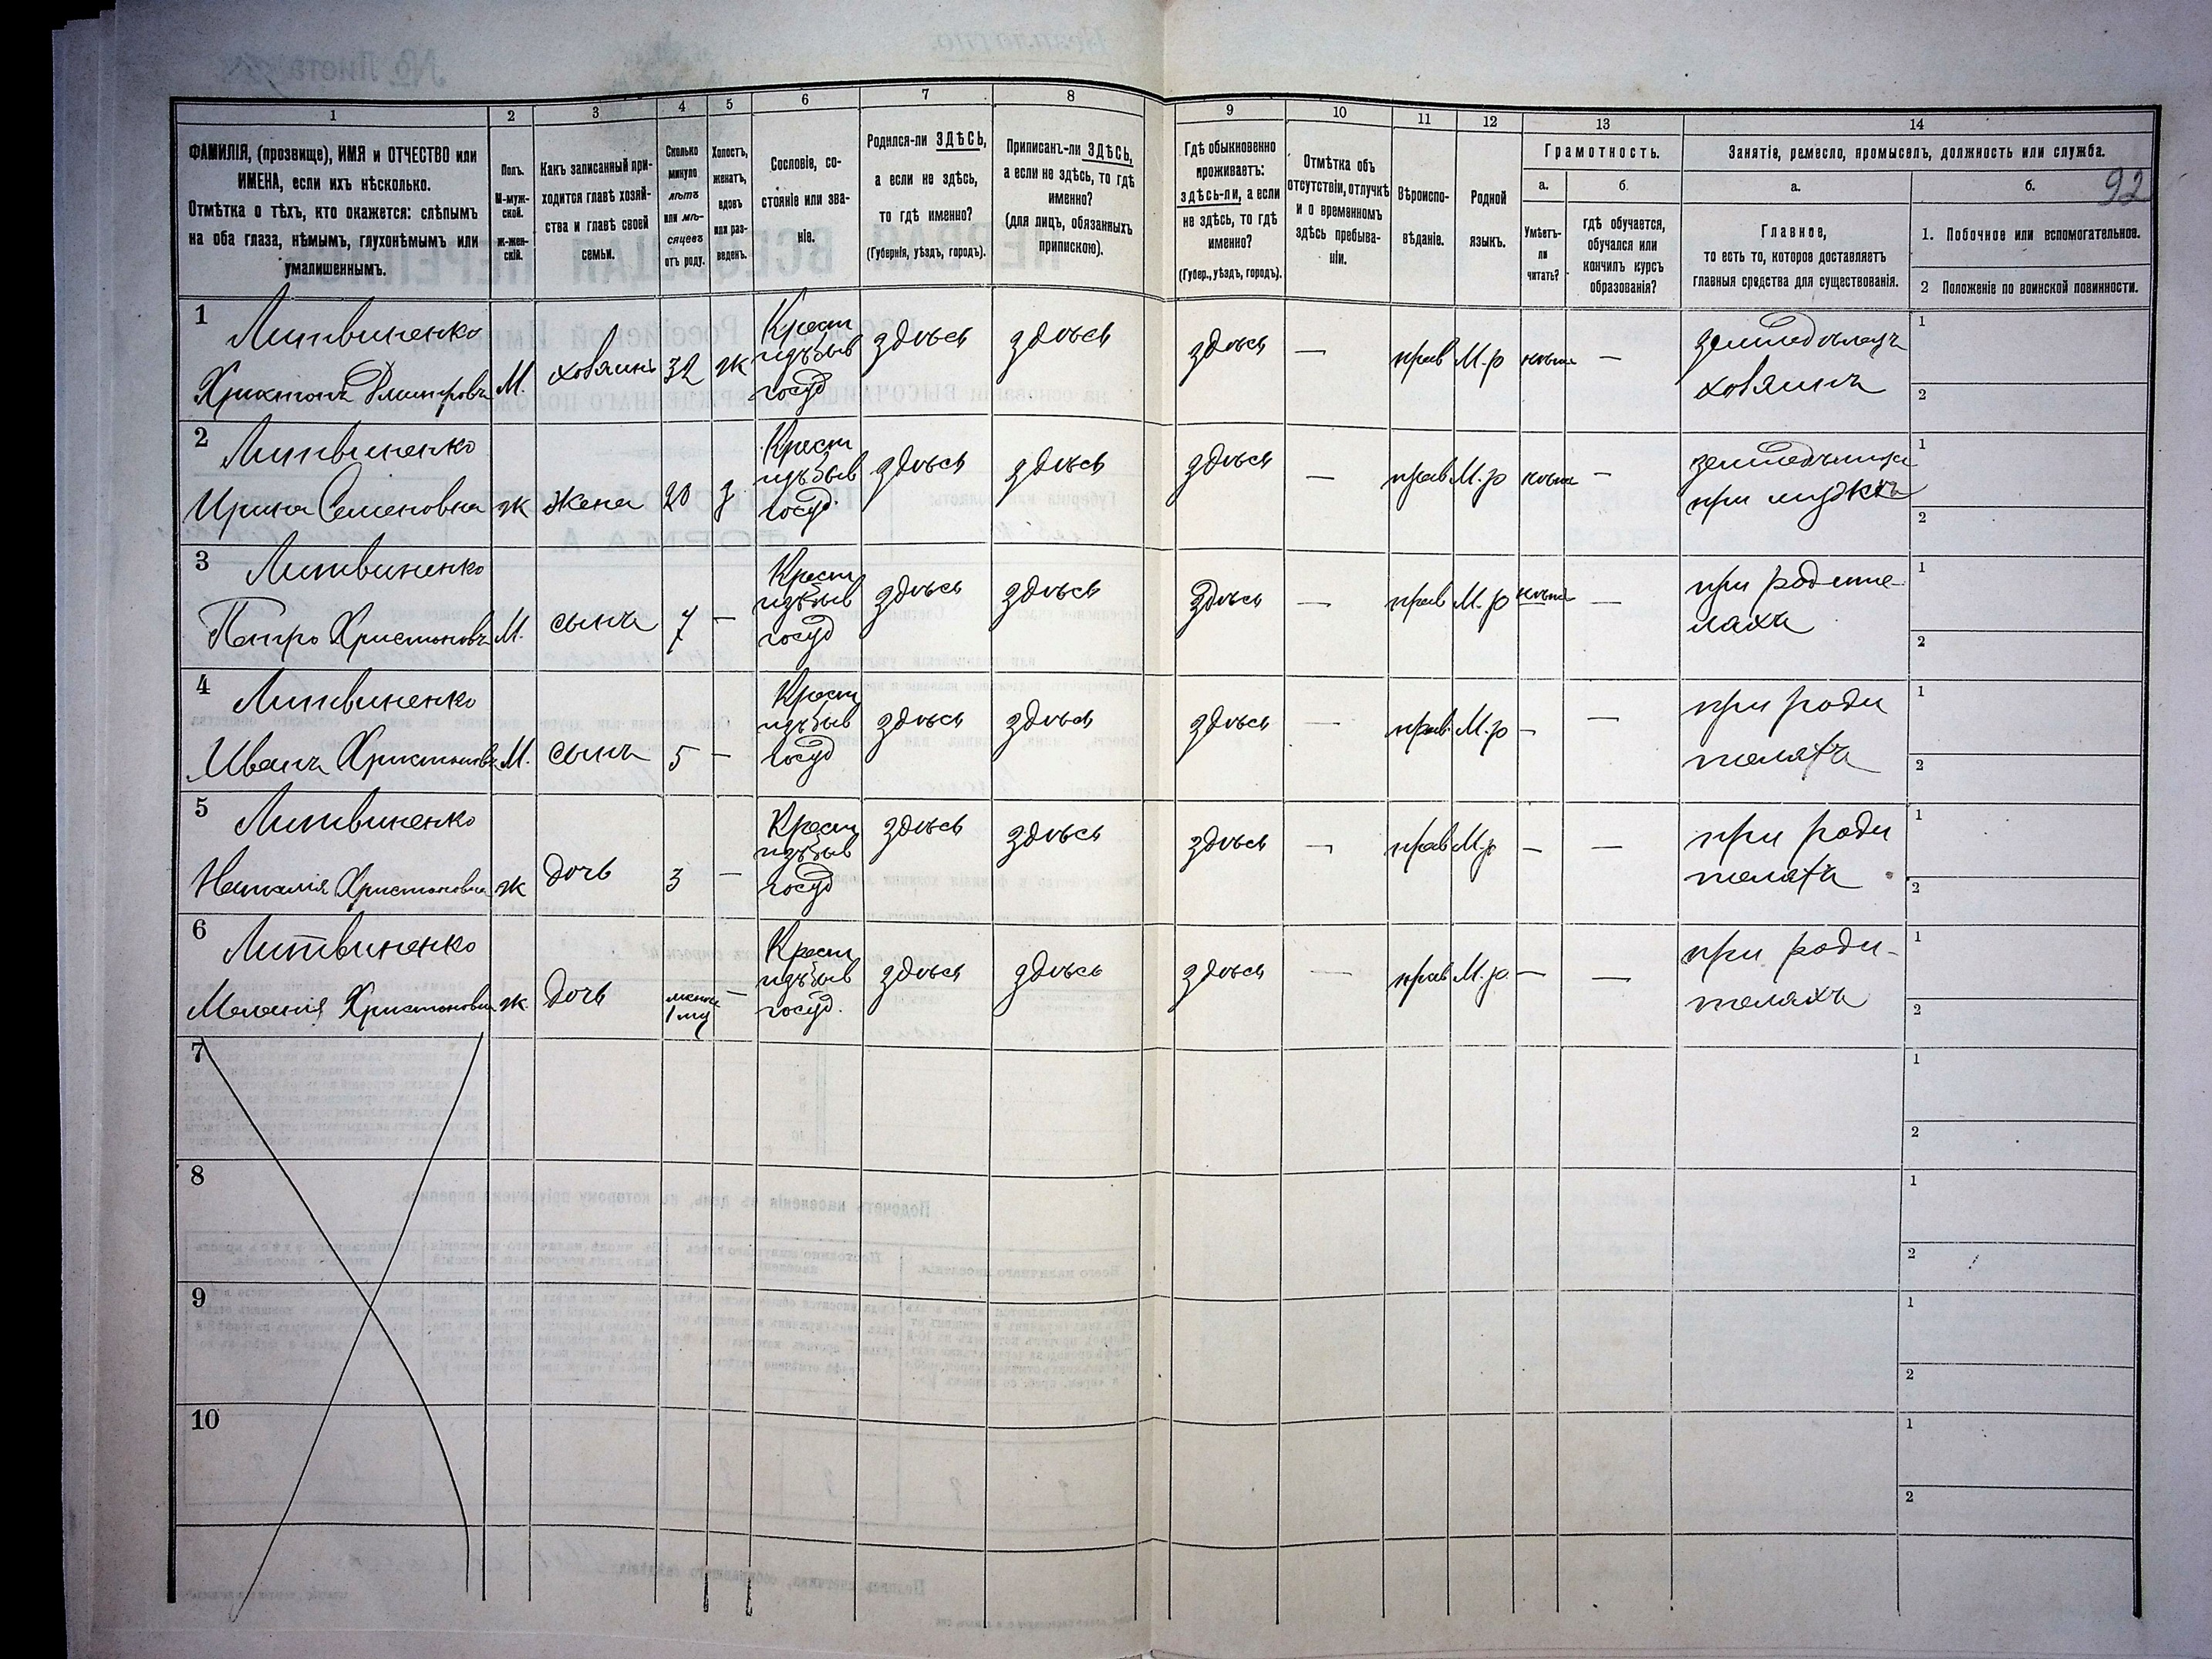 1 2 3 4 5 6 7 8 9 10 11 12 13 14
92
ФАМИЛІЯ, (прозвище), ИМЯ и ОТЧЕСТВО или
ИМЕНА, если ихъ нѣсколько.
Отмѣтка о тѣхъ, кто окажется: слѣпымъ
на оба глаза, нѣмымъ, глухонѣмымъ или
умалишеннымъ.
Полъ.
М-муж-
ской.
Ж-жен-
скій.
Какъ записанный при-
ходится главѣ хозяй-
ства и главѣ своей
семьи.
Сколько
минуло
лѣтъ
или мѣ-
сяцевъ
отъ роду.
Холостъ,
женатъ,
вдовъ
или раз-
веденъ.
Сословіе, со-
стояніе или зва-
ніе.
Родился-ли ЗДѢСЬ,
а если не здѣсь,
то гдѣ именно?
(Губернія, уѣздъ, городъ).
Приписанъ-ли ЗДѢСЬ,
а если не здѣсь, то гдѣ
именно?
(для лицъ, обязанныхъ
припискою).
Гдѣ обыкновенно
проживаетъ:
здѣсь-ли, а если
не здѣсь, то гдѣ
именно?
(Губер., уѣздъ, городъ).
Отмѣтка объ
отсутствіи, отлучкѣ
и о временномъ
здѣсь пребыва-
ніи.
Вѣроиспо-
вѣданіе.
Родной
языкъ.
Грамотность.
а.
Умѣетъ-
ли
читать?
б.
гдѣ обучается,
обучался или
кончилъ курсъ
образованія?
Занятіе, ремесло, промыселъ, должность или служба.
а.
Главное,
то есть то, которое доставляетъ
главныя средства для существованія.
б.
1. Побочное или вспомогательное.
2 Положеніе по воинской повинности.
1
Литвиненко
Христонъ Дмитровъ
М.
хозяинъ
32
ж
Крест
изъ быв
госуд
здѣсь
здѣсь
здѣсь
—
прав
М.р
нѣтъ
—
земледѣлецъ
хозяинъ
1
2
2
Литвиненко
Ирина Семеновна
ж
жена
20
з
Крест
изъ быв
госуд.
здѣсь
здѣсь
здѣсь
—
прав
М.р
нѣтъ
—
при мужѣ
1
2
3
Литвиненко
Петро Христоновъ
М.
сынъ
7
—
Крест
изъ быв
госуд
здѣсь
здѣсь
здѣсь
—
прав
М.р
нѣтъ
—
при родите-
лахъ
1
2
4
Литвиненко
Иванъ Христоновъ
М.
сынъ
5
—
Крест
изъ быв
госуд
здѣсь
здѣсь
здѣсь
—
прав.
М.р
—
—
при роди
теляхъ
1
2
5
Литвиненко
Наталія Христоновна
ж
дочь
3
—
Крест
изъ быв
госуд
здѣсь
здѣсь
здѣсь
—
прав
М.р
—
—
при роди
теляхъ
1
2
6
Литвиненко
Меланія Христоновна
ж.
дочь
менѣе
1
—
Крест
изъ быв
госуд.
здѣсь
здѣсь
здѣсь
—
прав
М.р
—
—
при роди-
теляхъ
1
2
7
1
2
8
1
2
9
1
2
10
1
2